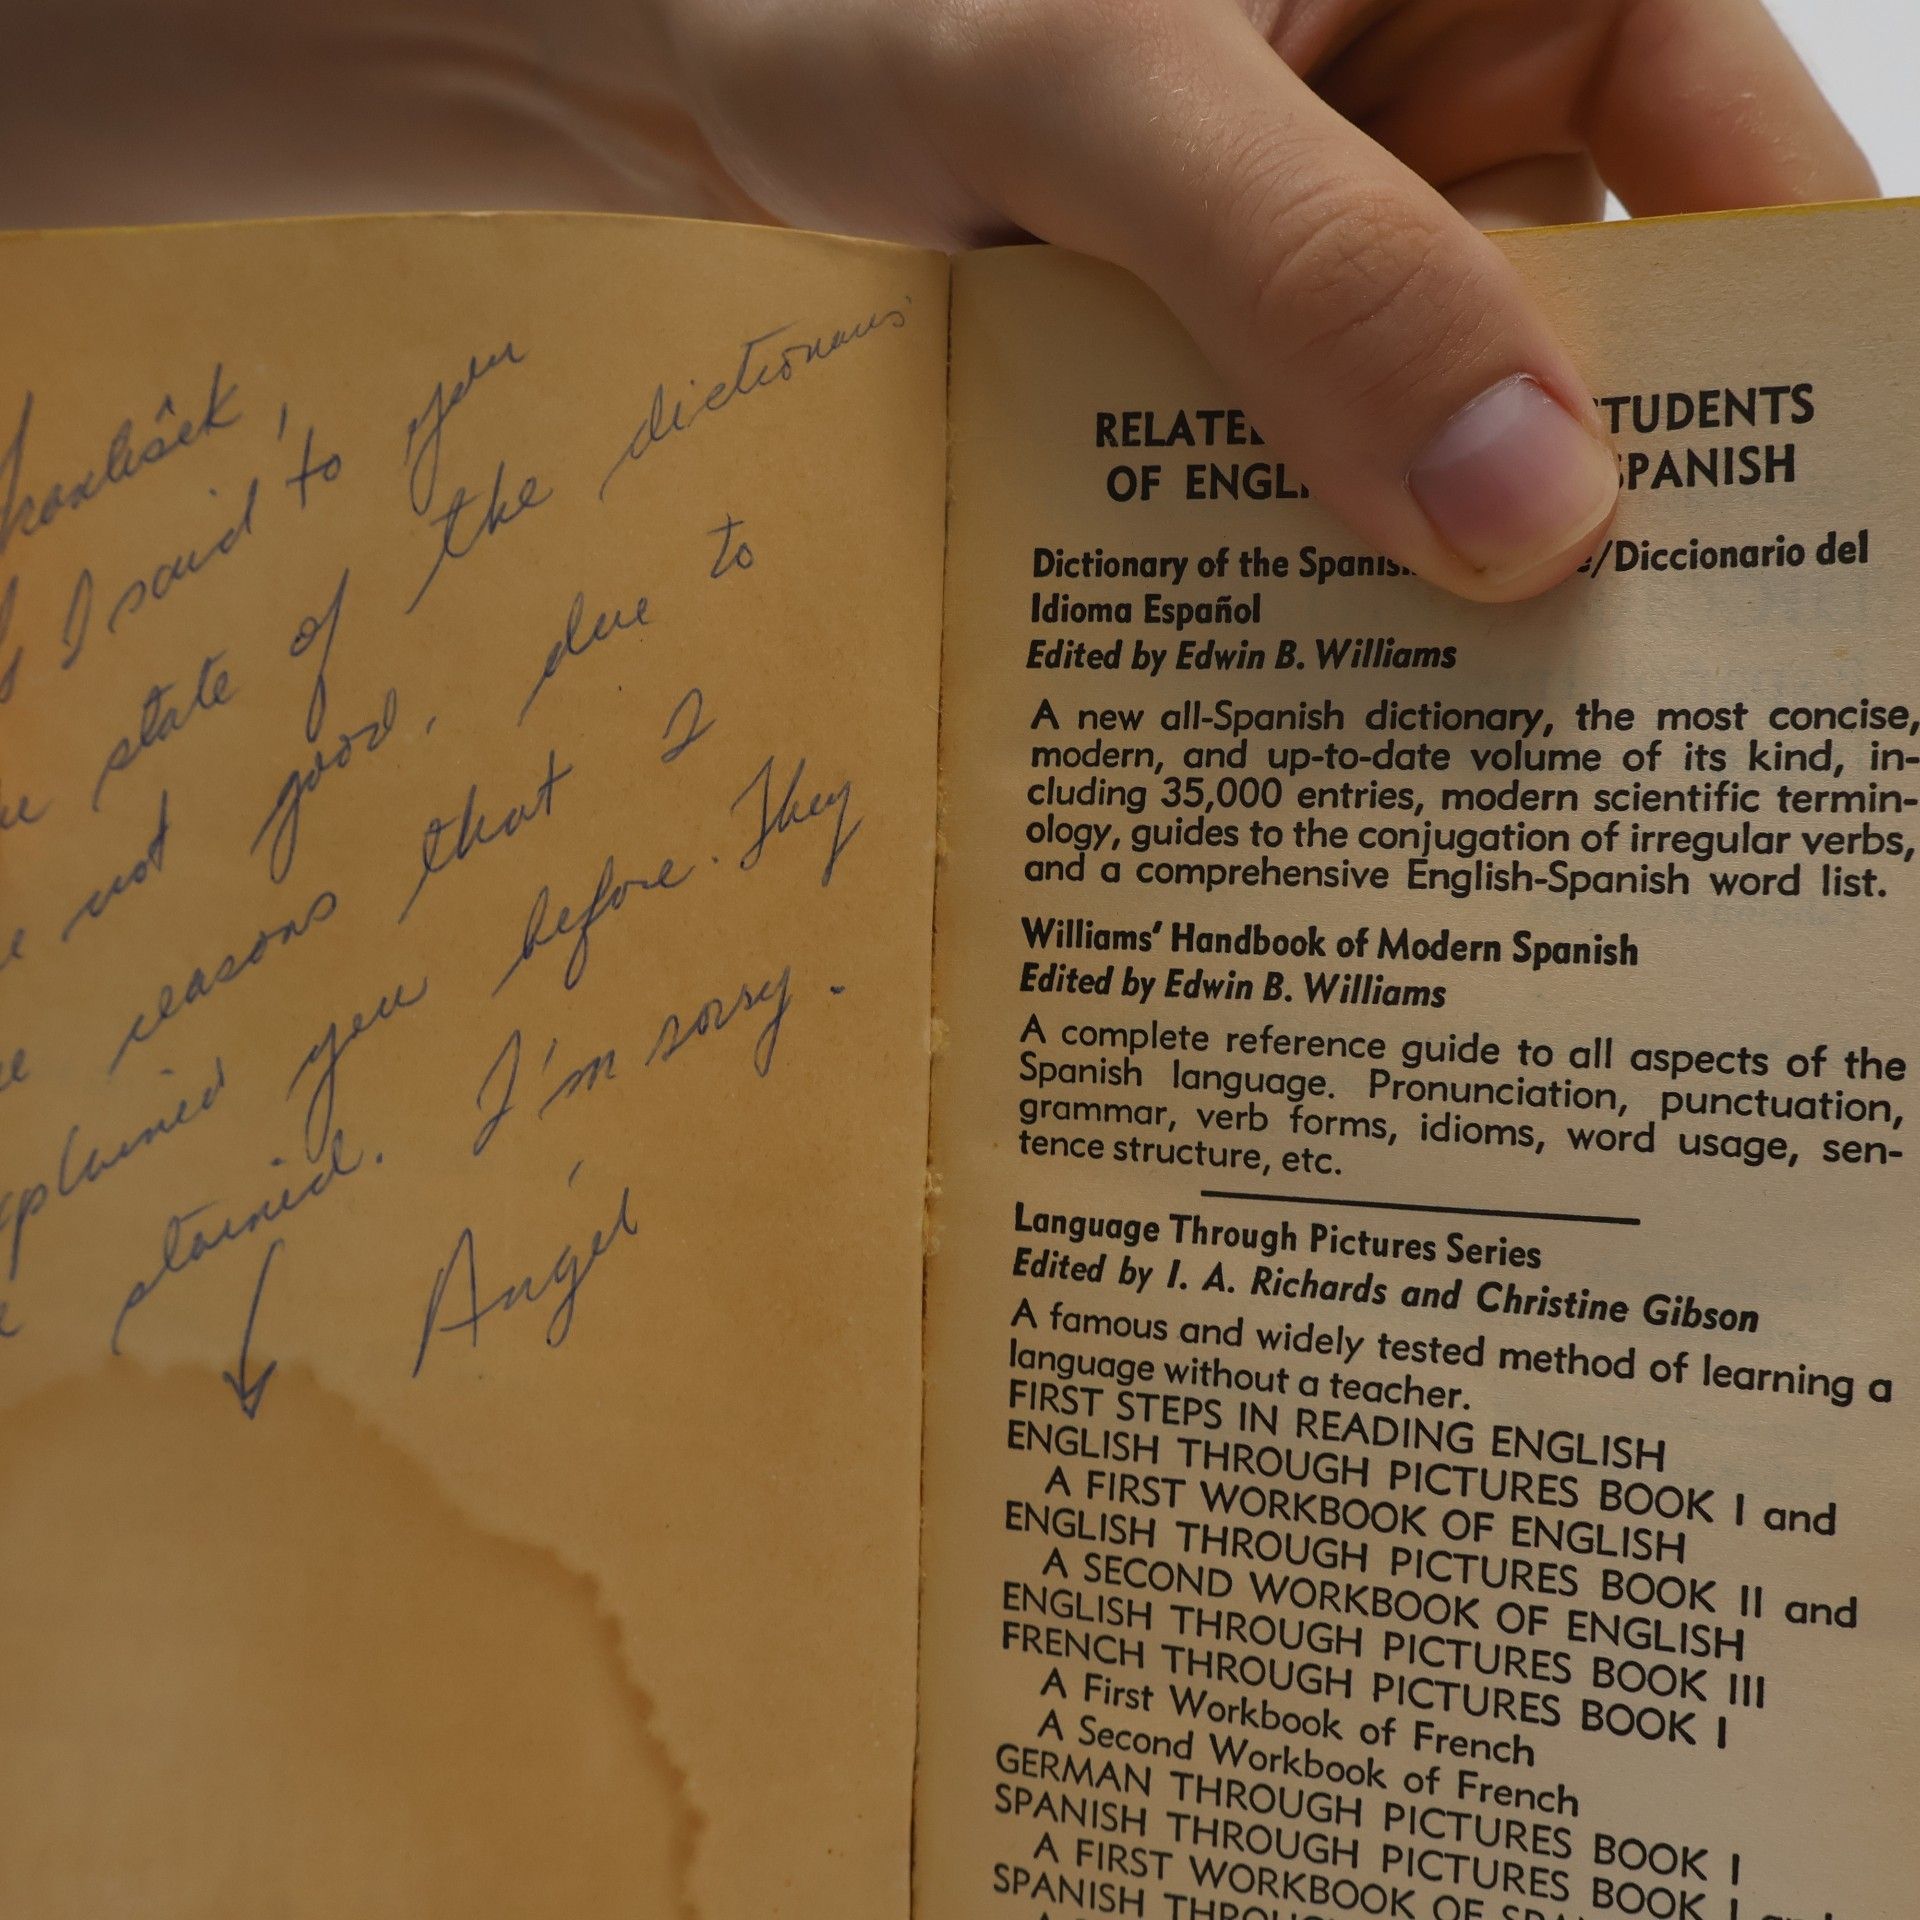 I said to you
state of the dictionaries
not good, due to
reasons that I
you before. They
stained. I'm sorry.
Angel
STUDENTS
OF SPANISH
Dictionary of the /Diccionario del
Idioma Español
Edited by Edwin B. Williams
A new all-Spanish dictionary, the most concise,
modern, and up-to-date volume of its kind, in-
cluding 35,000 entries, modern scientific termin-
ology, guides to the conjugation of irregular verbs,
and a comprehensive English-Spanish word list.
Williams' Handbook of Modern Spanish
Edited by Edwin B. Williams
A complete reference guide to all aspects of the
Spanish language. Pronunciation, punctuation,
grammar, verb forms, idioms, word usage, sen-
tence structure, etc.
Language Through Pictures Series
Edited by I. A. Richards and Christine Gibson
A famous and widely tested method of learning a
language without a teacher.
FIRST STEPS IN READING ENGLISH
ENGLISH THROUGH PICTURES BOOK I and
A FIRST WORKBOOK OF ENGLISH
ENGLISH THROUGH PICTURES BOOK II and
A SECOND WORKBOOK OF ENGLISH
ENGLISH THROUGH PICTURES BOOK III
FRENCH THROUGH PICTURES BOOK I
A First Workbook of French
A Second Workbook of French
GERMAN THROUGH PICTURES BOOK I
SPANISH THROUGH PICTURES BOOK I
A FIRST WORKBOOK OF
SPANISH